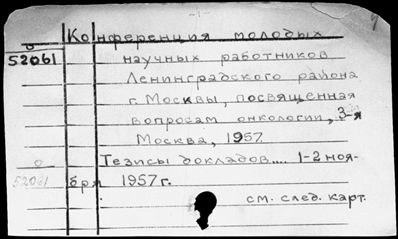 Конференция молодых
52061 научных работников
Ленинградского района
г. Москвы, посвященная
вопросам онкологии, 3-я
Москва, 1957.
Тезисы докладов.... 1-2 ноя-
52061 бря 1957 г.
см. след. карт.